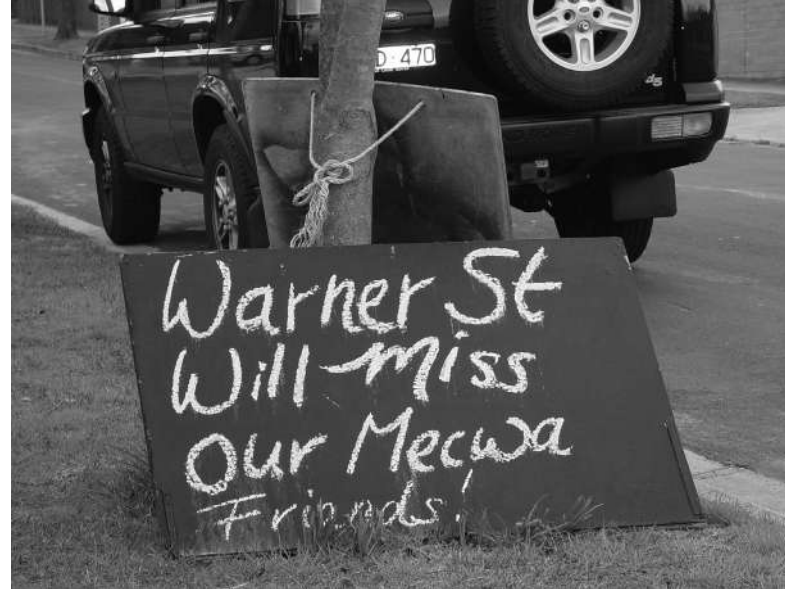 D·470
Warner St
Will miss
Our Mecwa
Friends!